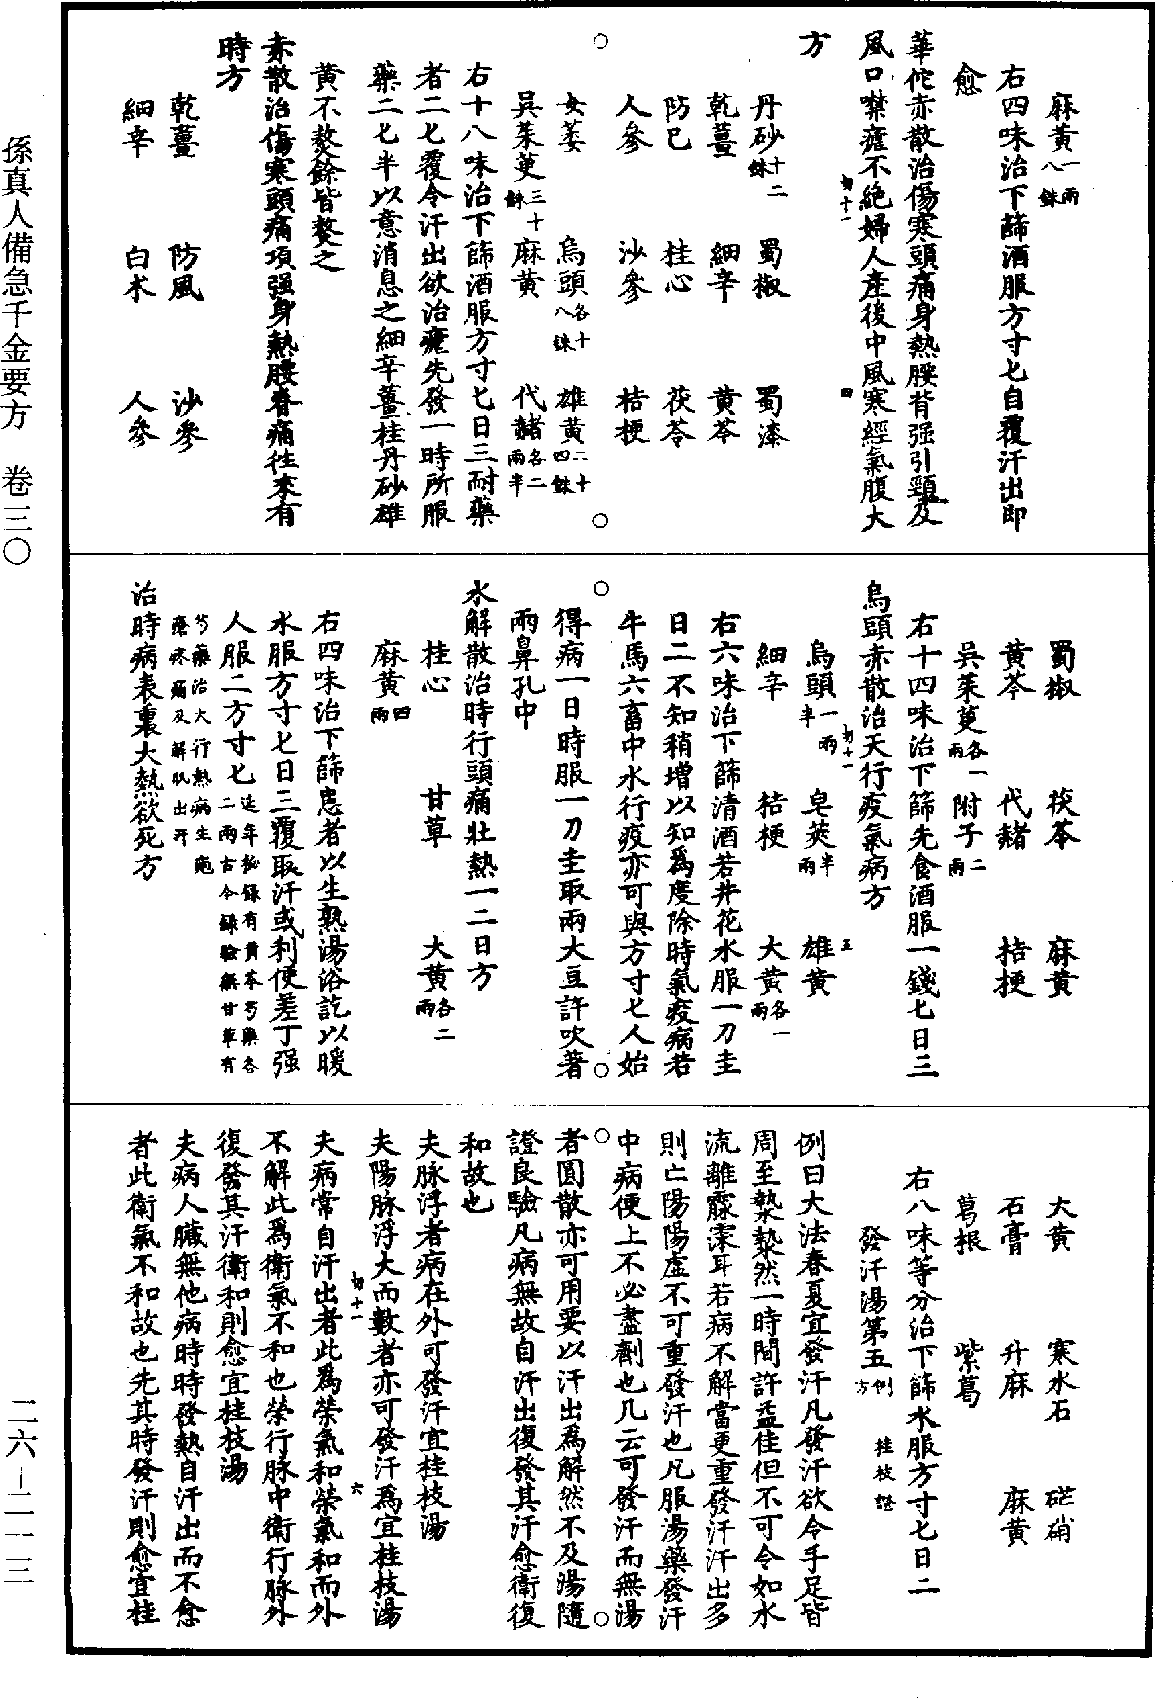 麻黃一兩八銖
右四味治下篩酒服方寸匕自覆汗出即
愈
華佗赤散治傷寒頭痛身熱腰背强引頸及
風口噤瘧不絶婦人產後中風寒經氣腹大
方
丹砂十二銖　蜀椒　蜀漆
乾薑　細辛　黃芩
防已　桂心　茯苓
人參　沙參　桔梗
女萎　烏頭各十八銖　雄黃二十四銖
吳茱萸三十銖　麻黃　代赭各二兩半
右十八味治下篩酒服方寸匕日三耐藥
者二匕覆令汗出欲治瘧先發一時所服
藥二匕半以意消息之細辛薑桂丹砂雄
黃不熬餘皆熬之
赤散治傷寒頭痛項强身熱腰脊痛往來有
時方
乾薑　防風　沙參
細辛　白朮　人參
蜀椒　茯苓　麻黃
黃芩　代赭　桔梗
吳茱萸各一兩　附子二兩
右十四味治下篩先食酒服一錢匕日三
烏頭赤散治天行疫氣病方
烏頭一兩半　皂莢半兩　雄黃
細辛　桔梗　大黃各一兩
右六味治下篩清酒若井花水服一刀圭
日二不知稍增以知爲度除時氣疫病若
牛馬六畜中水行疫亦可與方寸匕人始
得病一日時服一刀圭取兩大豆許吹著
兩鼻孔中
水解散治時行頭痛壯熱一二日方
桂心　甘草　大黃各二兩
麻黃四兩
右四味治下篩患者以生熟湯浴訖以暖
水服方寸匕日三覆取汗或利便差丁强
人服二方寸匕延年秘錄有黃芩芍藥各二兩古今錄驗無甘草有
芍藥治大行熱病生皰瘡疼痛及解肌出汗
治時病表裏大熱欲死方
大黃　寒水石　芒硝
石膏　升麻　麻黃
葛根　紫葛
右八味等分治下篩水服方寸匕日二
發汗湯第五例　桂枝證　方
例曰大法春夏宜發汗凡發汗欲令手足皆
周至漐漐然一時間許益佳但不可令如水
流離霡霂耳若病不解當更重發汗汗出多
則亡陽陽虛不可重發汗也凡服湯藥發汗
中病便上不必盡劑也凡云可發汗而無湯
者圓散亦可用要以汗出爲解然不及湯隨
證良驗凡病無故自汗出復發其汗愈衛復
和故也
夫脉浮者病在外可發汗宜桂枝湯
夫陽脉浮大而數者亦可發汗爲宜桂枝湯
夫病常自汗出者此爲榮氣和榮氣和而外
不解此爲衛氣不和也榮行脉中衛行脉外
復發其汗衛和則愈宜桂枝湯
夫病人臟無他病時時發熱自汗出而不愈
者此衛氣不和故也先其時發汗則愈宜桂
孫真人備急千金要方　卷三〇
二六－二一三